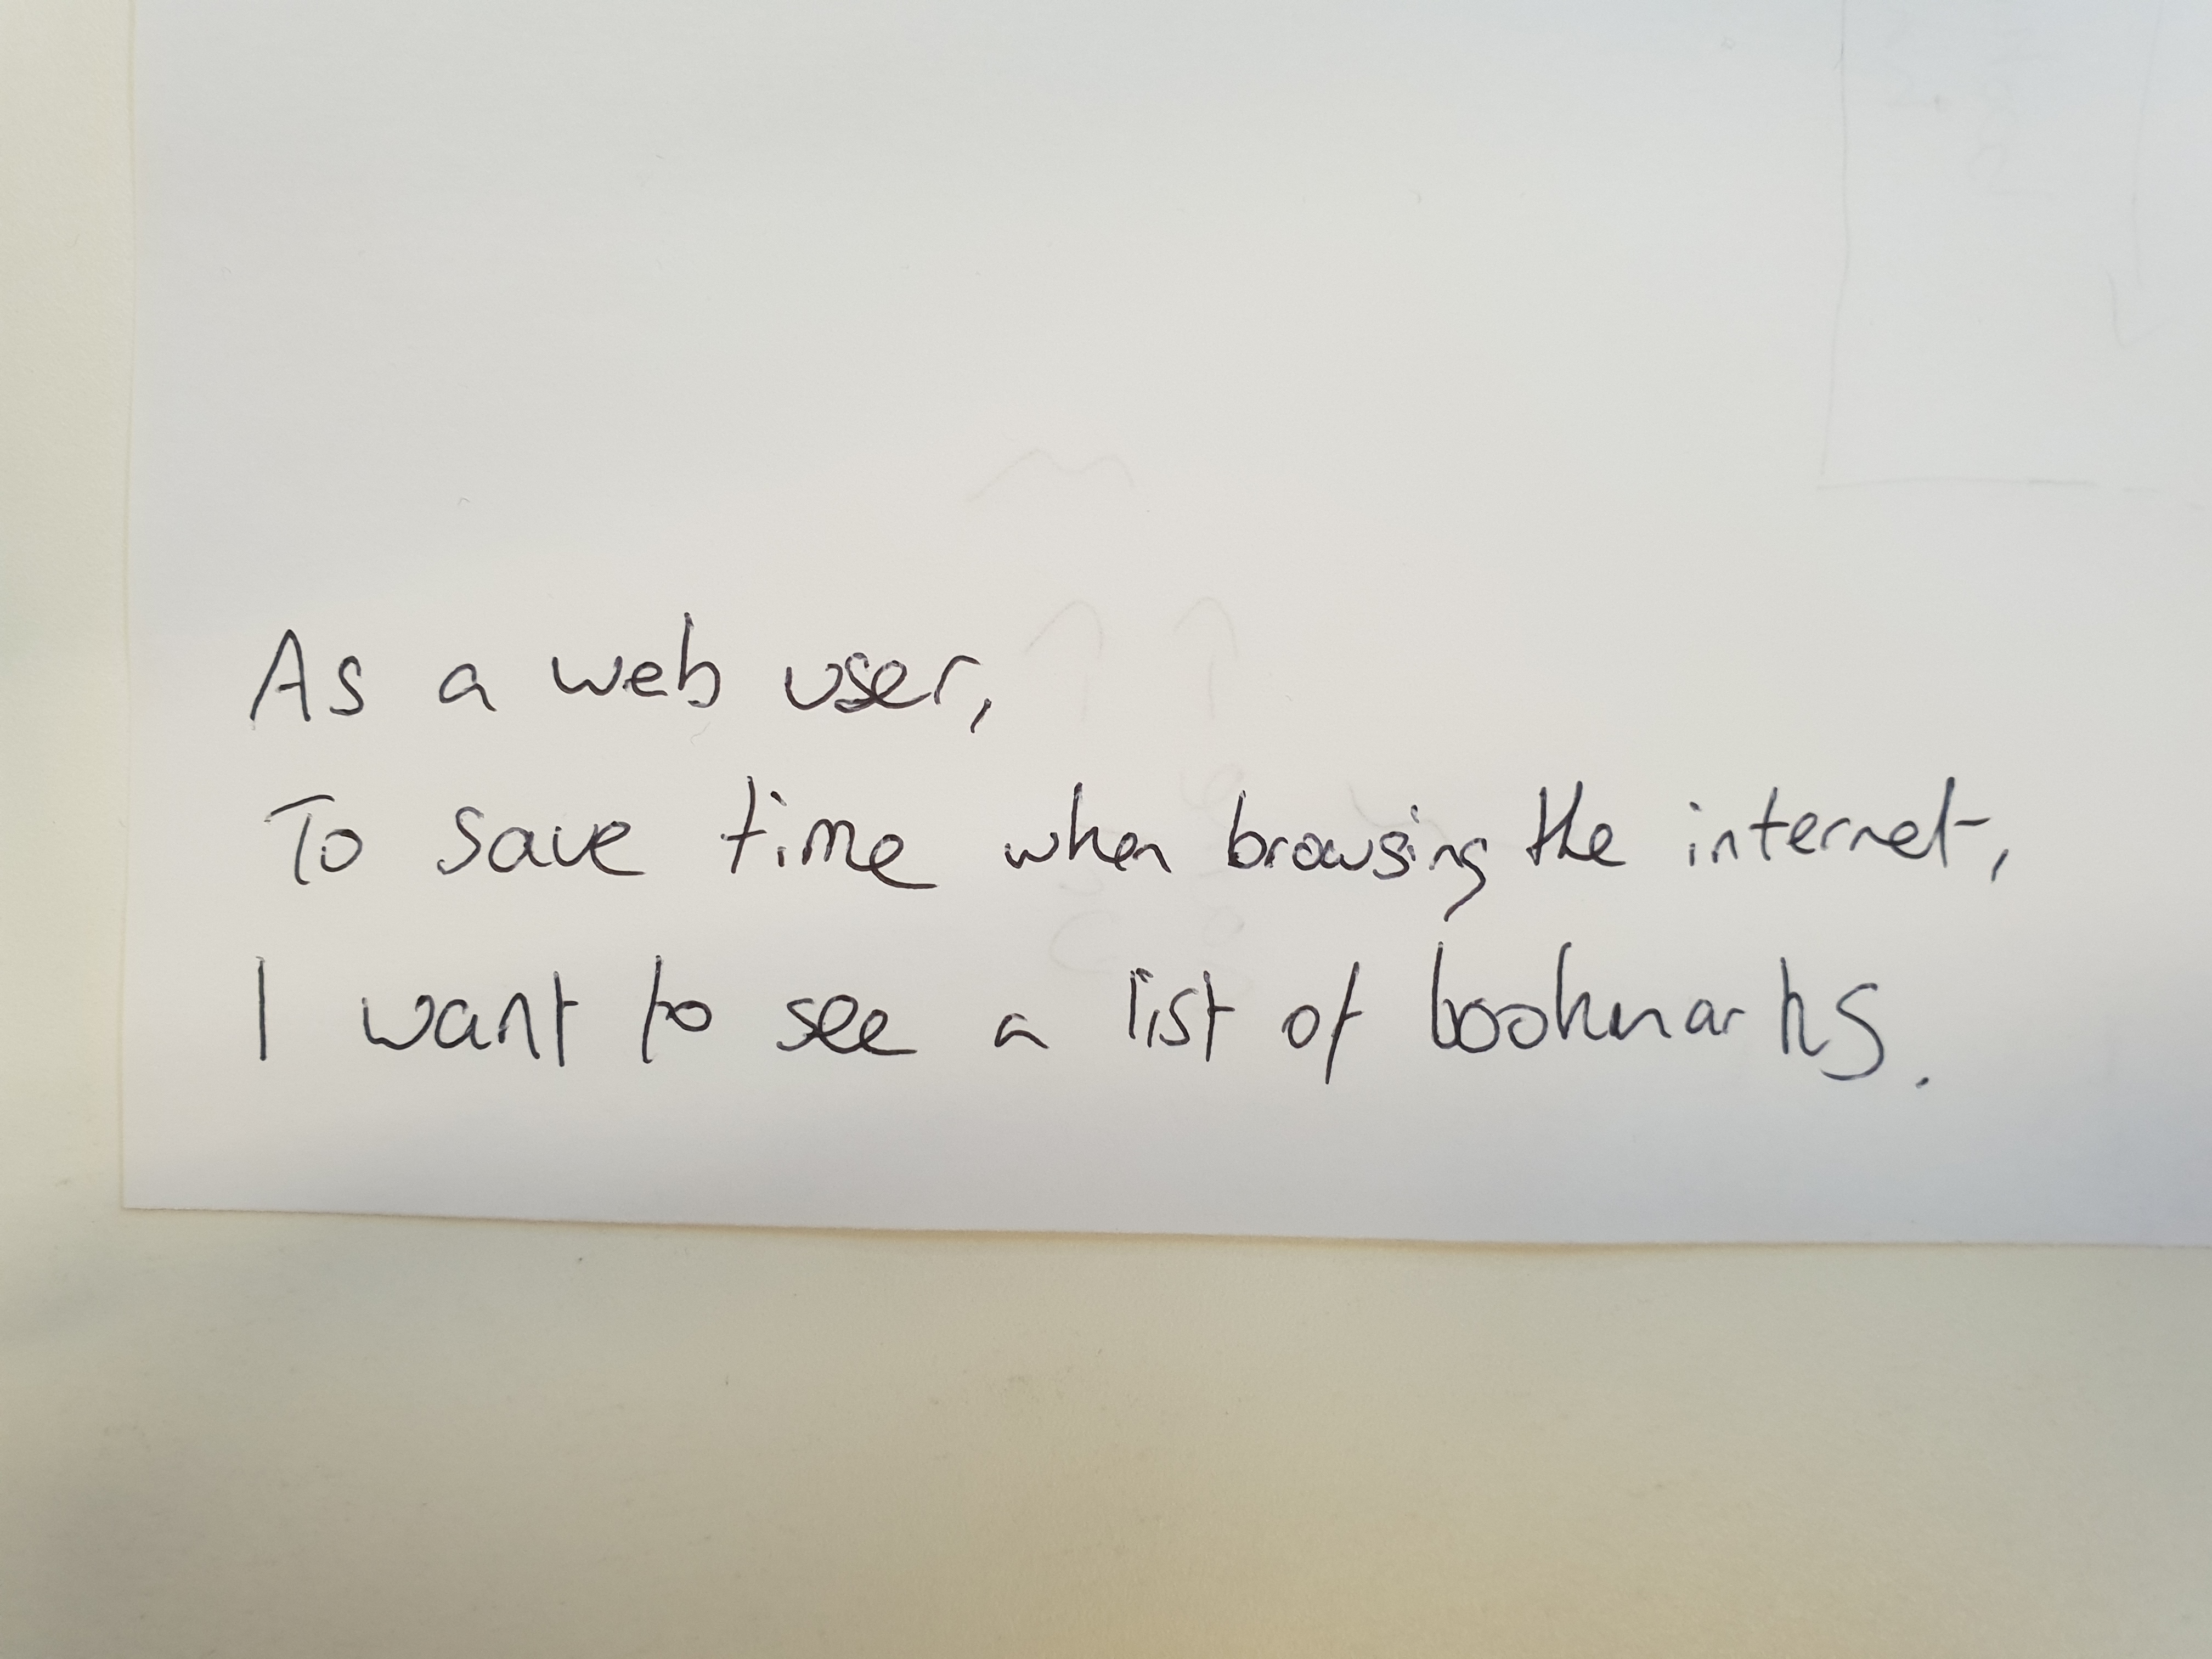 As a web user,
To save time when browsing the internet,
I want to see a list of bookmarks.